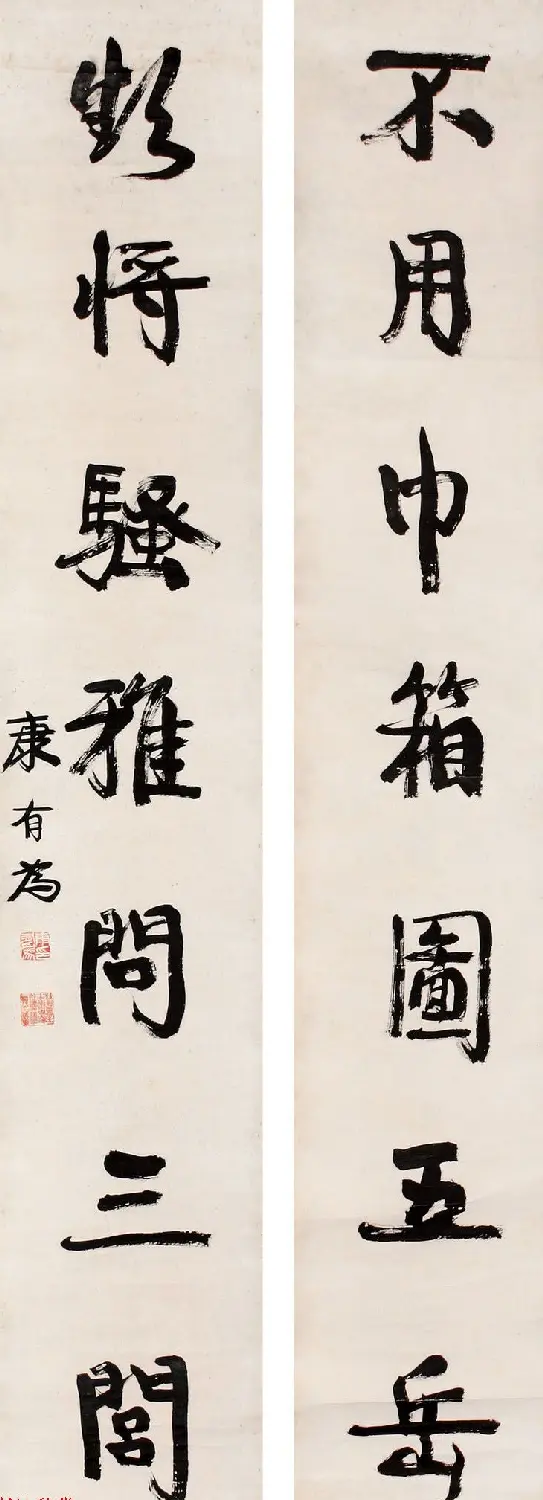 不用巾箱圖五岳
將騷雅問三閭
康有為